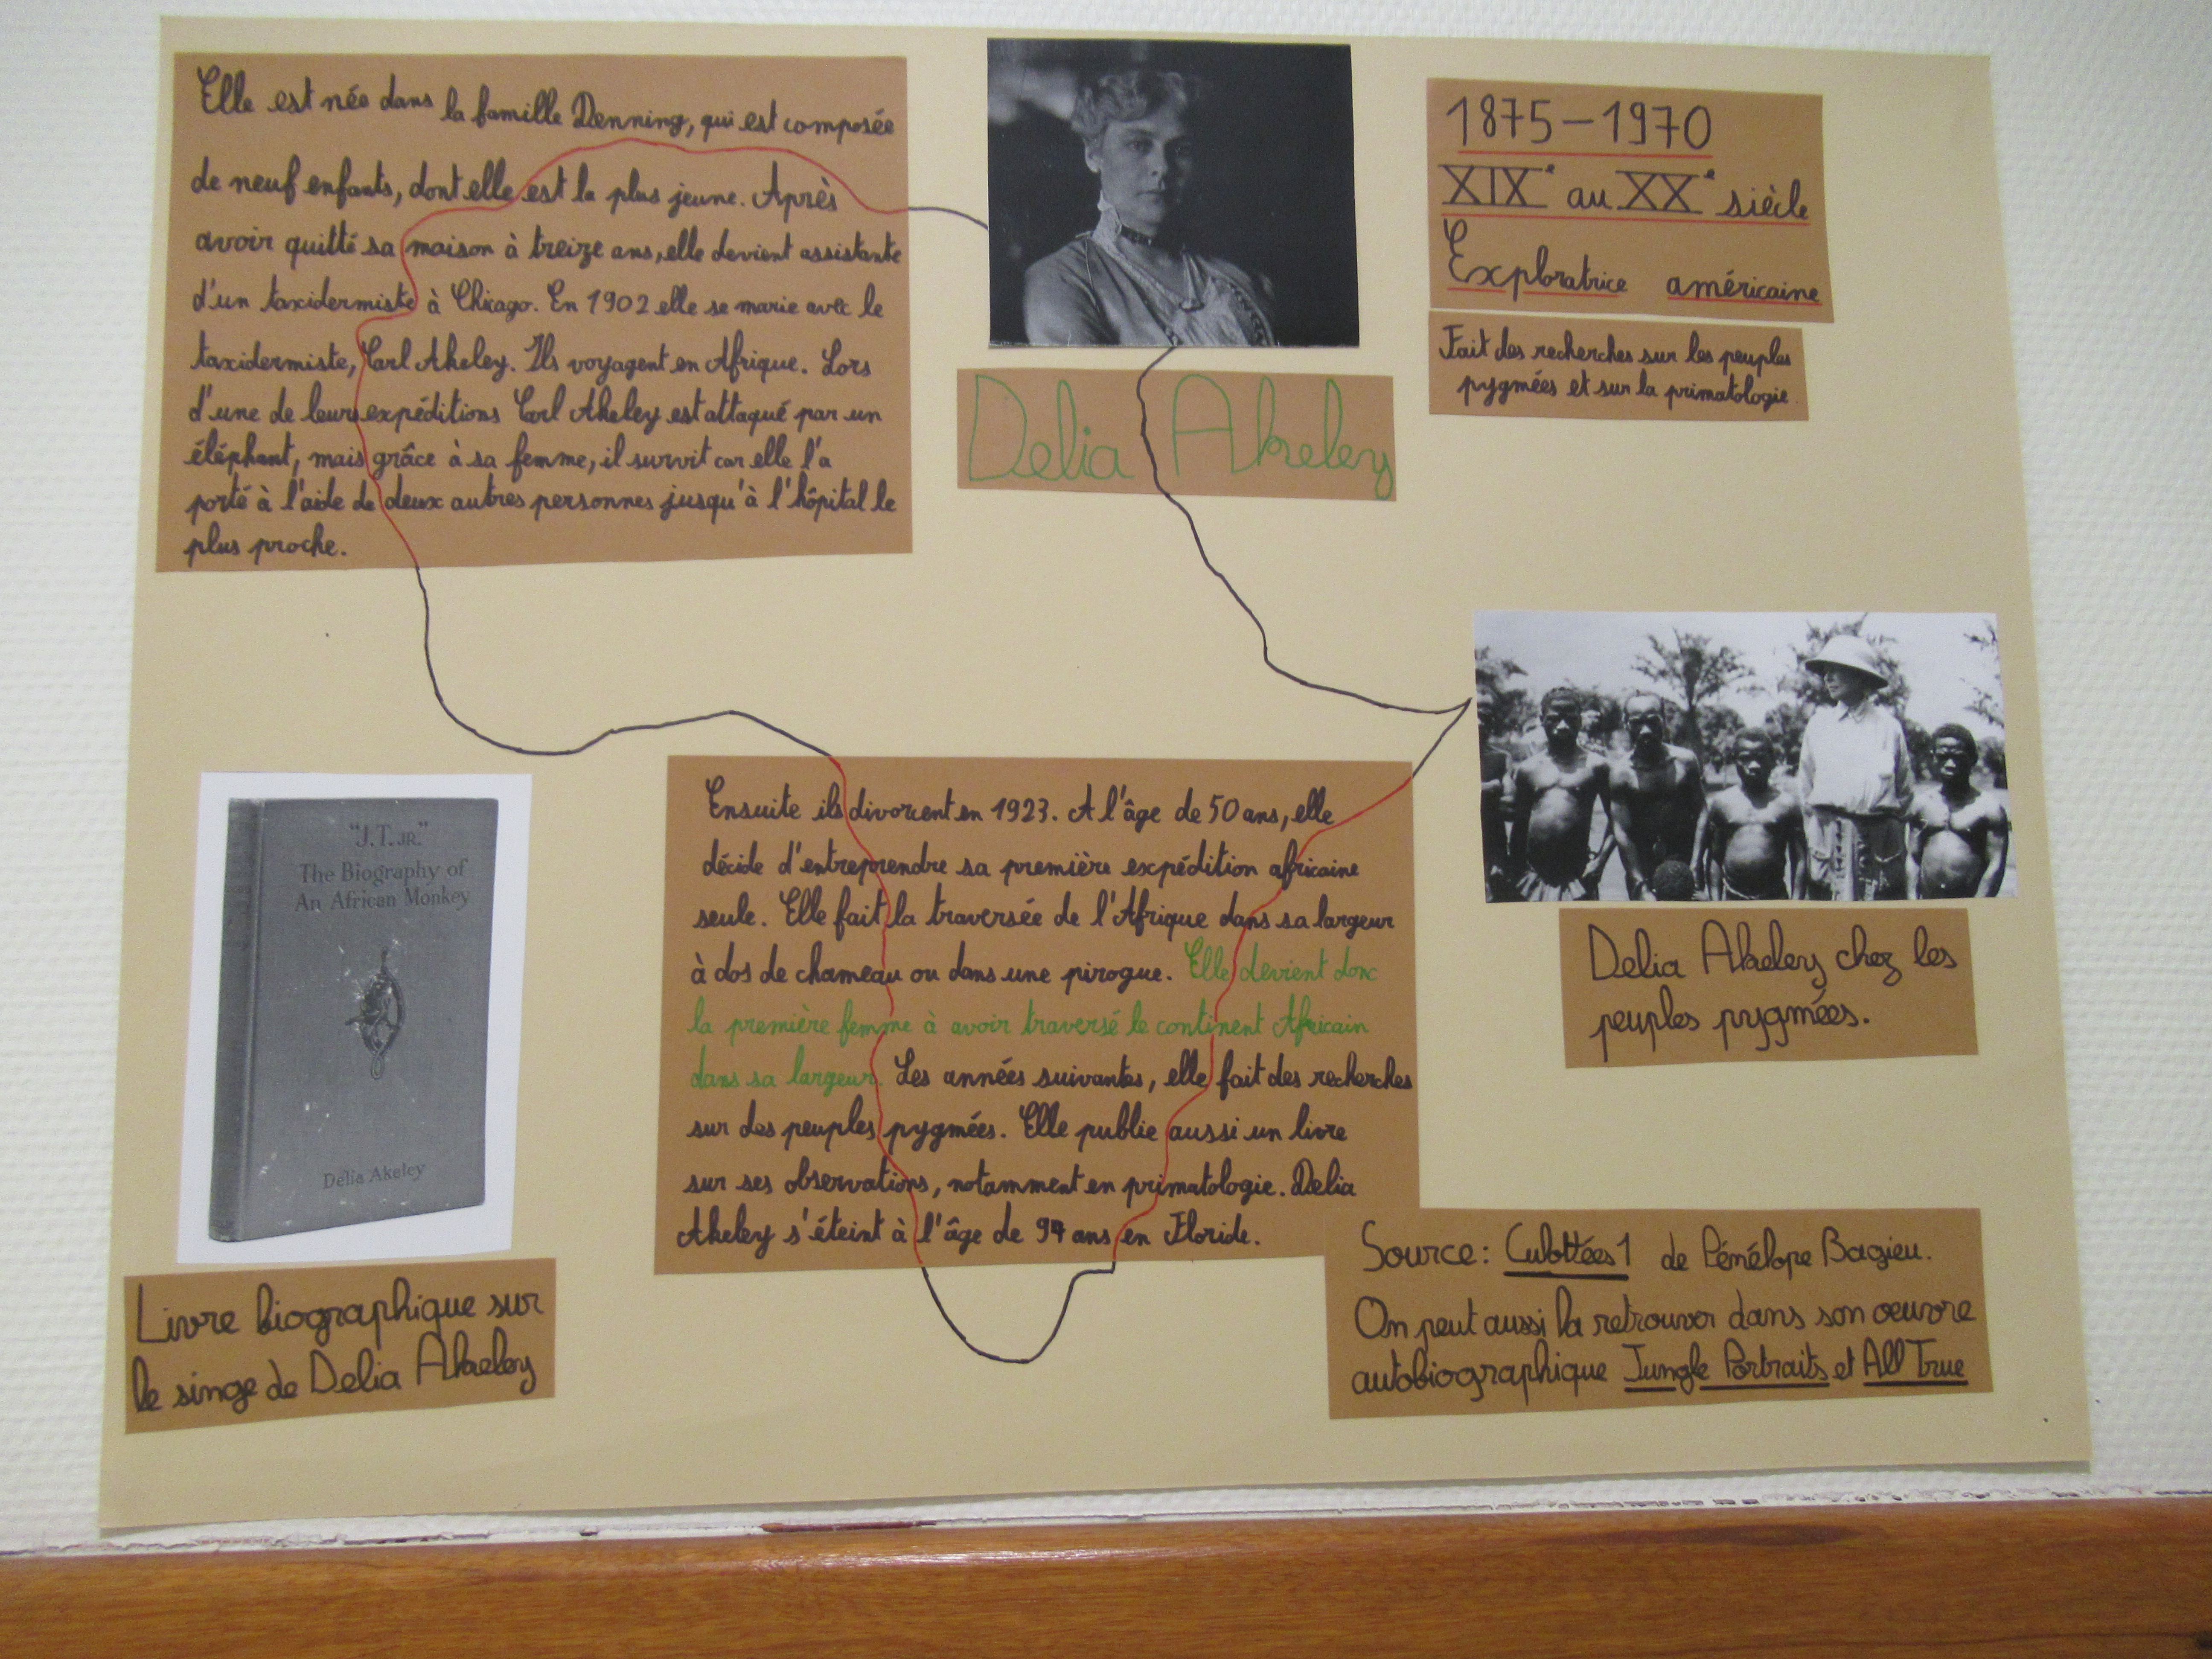 Elle est née dans la famille Denning, qui est composée
de neuf enfants, dont elle est la plus jeune. Après
avoir quitté sa maison à treize ans, elle devient assistante
d'un taxidermiste à Chicago. En 1902 elle se marie avec le
taxidermiste, Carl Akeley. Ils voyagent en Afrique. Lors
d'une de leurs expéditions Carl Akeley est attaqué par un
éléphant, mais grâce à sa femme, il survit car elle l'a
porté à l'aide de deux autres personnes jusqu'à l'hôpital le
plus proche.
Delia Akeley
1875-1970
XIXe au XXe siècle
Exploratrice américaine
Fait des recherches sur les peuples
pygmées et sur la primatologie.
"J.T. JR."
The Biography of
An African Monkey
Delia Akeley
Livre biographique sur
le singe de Delia Akeley
Ensuite ils divorcent en 1923. A l'âge de 50 ans, elle
décide d'entreprendre sa première expédition africaine
seule. Elle fait la traversée de l'Afrique dans sa largeur
à dos de chameau ou dans une pirogue. Elle devient donc
la première femme à avoir traversé le continent Africain
dans sa largeur. Les années suivantes, elle fait des recherches
sur des peuples pygmées. Elle publie aussi un livre
sur ses observations, notamment en primatologie. Delia
Akeley s'éteint à l'âge de 94 ans en Floride.
Delia Akeley chez les
peuples pygmées.
Source: Culottées 1 de Pénélope Bagieu.
On peut aussi la retrouver dans son oeuvre
autobiographique Jungle Portraits et All True